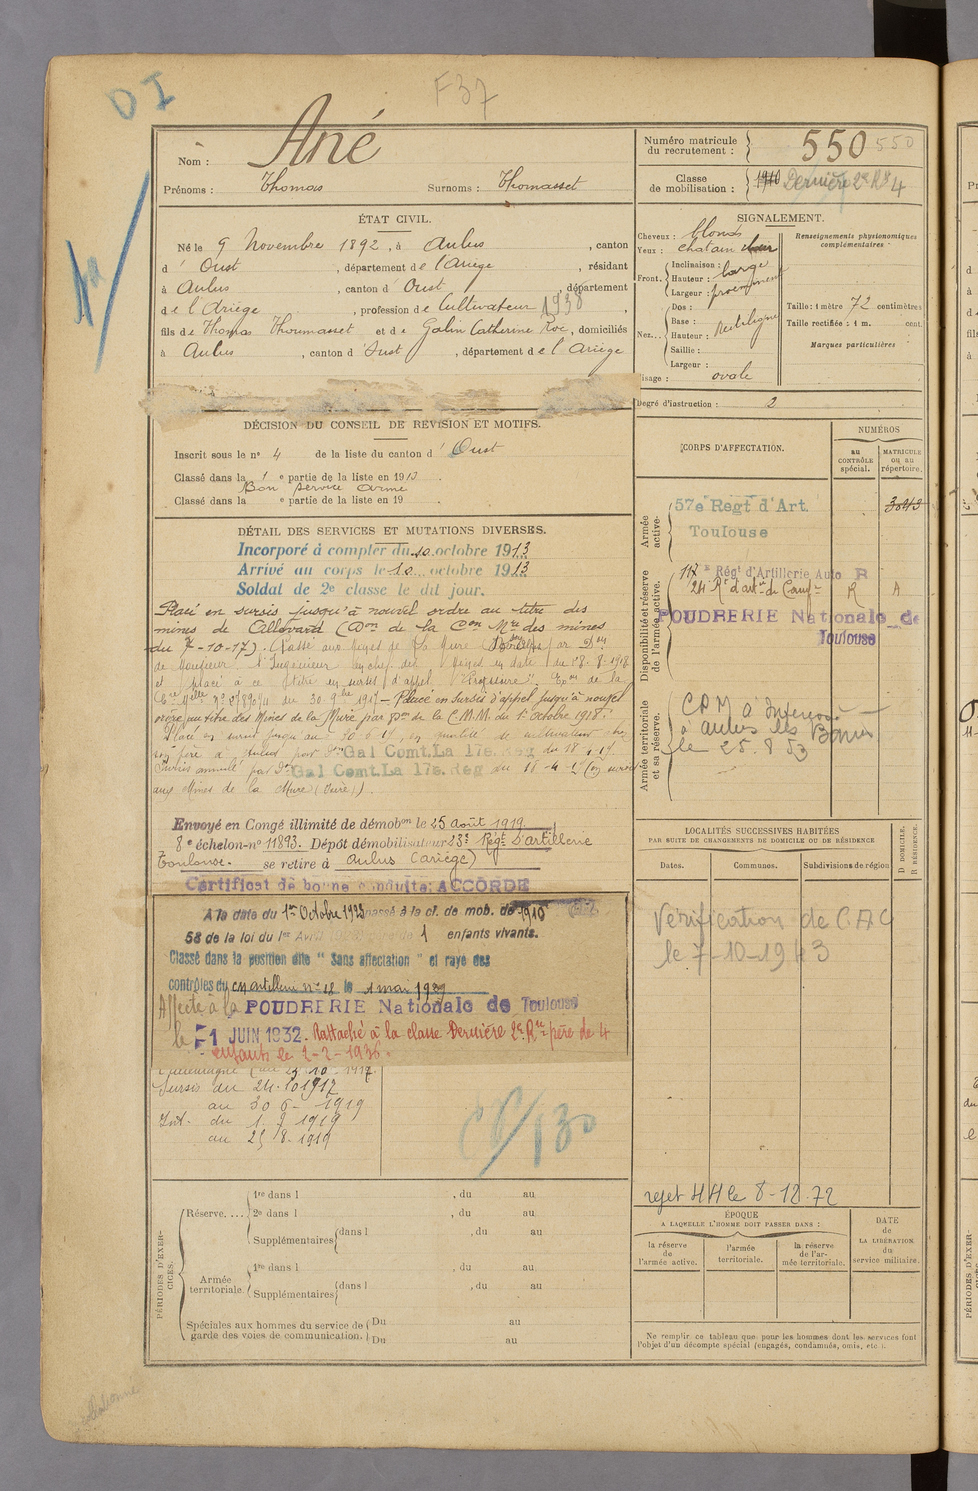 D I
F37
Nom : Ané
Prénoms : Thomas Surnoms : Thomasset
ÉTAT CIVIL.
Né le 9 Novembre 1892, à Aulus, canton
d' Oust, département de l'Ariège, résidant
à Aulus, canton d' Oust, département
de l'Ariège, profession de Cultivateur 1938,
fils de Thomas Thoumasset et de Galin Catherine Roc, domiciliés
à Aulus, canton d' Oust, département de l'Ariège
DÉCISION DU CONSEIL DE RÉVISION ET MOTIFS.
Inscrit sous le nº 4 de la liste du canton d' Oust
Classé dans la 1e partie de la liste en 1913.
Bon service armé
Classé dans la e partie de la liste en 19 .
DÉTAIL DES SERVICES ET MUTATIONS DIVERSES.
Incorporé à compter du 10 octobre 1913
Arrivé au corps le 10 octobre 1913
Soldat de 2e classe le dit jour.
Placé en sursis jusqu'à nouvel ordre au titre des
mines de Allevard (Don de la Con Mre des mines
du 7-10-17). Passé aux Mines de La Mure par Don
de Monsieur l'Ingénieur en chef des Mines en date du 18-8-1918
et placé à ce titre en sursis d'appel
du 30 9bre 1917 – Placé en Sursis d'appel jusqu'à nouvel
ordre au titre des Mines de la Mure par Don de la C.M.M. du 1er Octobre 1918.
Placé en sursis jusqu'au 30-6-19, en qualité de cultivateur chez
son père à Aulus par Don Gal Comt. La 17e. Reg du 18-1-19.
Sursis annulé par Don Gal Comt. La 17e. Reg du 18-4-19 (en sursis
aux Mines de la Mure (Isère)).
Envoyé en Congé illimité de démobon le 25 août 1919
8e échelon-nº 11893. Dépôt démobilisateur 23e Régt d'artillerie
Toulouse. se retire à Aulus (Ariège)
Certificat de bonne conduite: ACCORDÉ
A la date du 1er Octobre 1923 passé à la cl. de mob. de 1910
58 de la loi du 1er Avril 1923 père de 1 enfants vivants.
Classé dans la position dite "Sans affectation" et rayé des
contrôles du C.M. artillerie nº 18 le 1 mai 1929
Affecté à la POUDRERIE Nationale de Toulouse
le 1 JUIN 1932. Rattaché à la classe Dernière 2e Rve père de 4
enfants le 2-2-1936.
Sursis du 24.10 1917
au 30 6- 1919
Int. du 1. 7 1919
au 25 8- 1919
PÉRIODES D'EXERCICES.
Réserve....
1re dans l , du au
2e dans l , du au
Supplémentaires dans l , du au
Armée territoriale.
1re dans l , du au
Supplémentaires dans l , du au
Spéciales aux hommes du service de garde des voies de communication.
Du au
Du au
Numéro matricule du recrutement : 550 550
Classe de mobilisation : 1910 Dernière 2e Rve 4
SIGNALEMENT.
Cheveux : blonds
Yeux : chatain clair
Front.
Inclinaison :
Hauteur : large
Largeur : proéminent
Nez...
Dos :
Base :
Hauteur : Rectiligne
Saillie :
Largeur :
Visage : ovale
Renseignements physionomiques complémentaires
Taille : 1 mètre 72 centimètres
Taille rectifiée : 1 m. cent.
Marques particulières
Degré d'instruction : 2
CORPS D'AFFECTATION.
NUMÉROS
au CONTRÔLE spécial.
MATRICULE ou au répertoire.
Armée active.
57e Régt d'Art.
Toulouse
Disponibilité et réserve de l'armée active.
117e Régt d'Artillerie Auto R
24 Rt d'artie de Campne R A
POUDRERIE Nationale de
Toulouse
Armée territoriale et sa réserve.
à Aulus les Bains
le 25.8 53
LOCALITÉS SUCCESSIVES HABITÉES
PAR SUITE DE CHANGEMENTS DE DOMICILE OU DE RÉSIDENCE
Dates. Communes. Subdivisions de région
D DOMICILE.
R RÉSIDENCE.
Vérification de CAC
le 7-10-1943
rejet HH le 8-12-72
ÉPOQUE
A LAQUELLE L'HOMME DOIT PASSER DANS :
la réserve de l'armée active.
l'armée territoriale.
la réserve de l'armée territoriale.
DATE de LA LIBÉRATION du service militaire.
Ne remplir ce tableau que pour les hommes dont les services font
l'objet d'un décompte spécial (engagés, condamnés, omis, etc.).